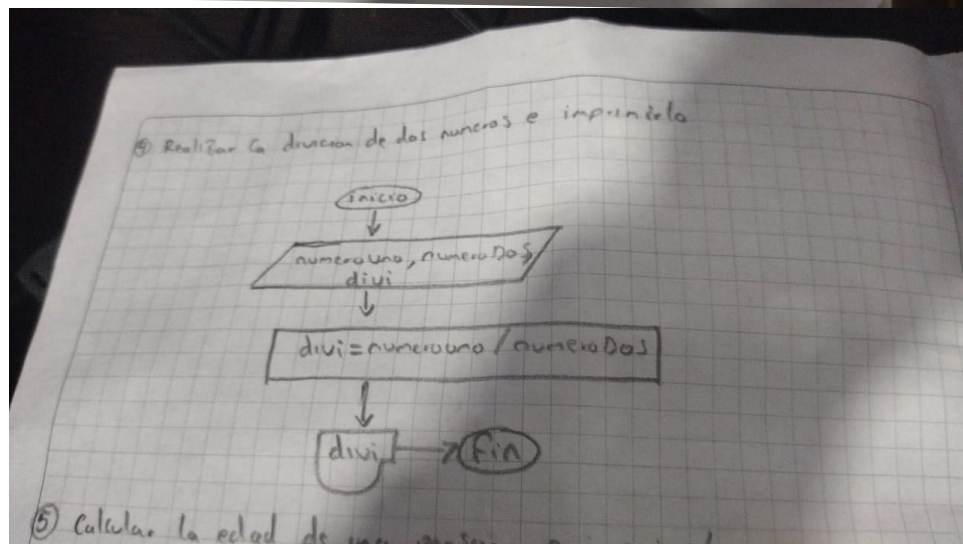 ④ Realizar la divicion de dos numeros e imprimirlo
inicio
numeroUno, numeroDos,
divi
divi=numerouno / numeroDos
divi
fin
⑤ Calcular la edad de una